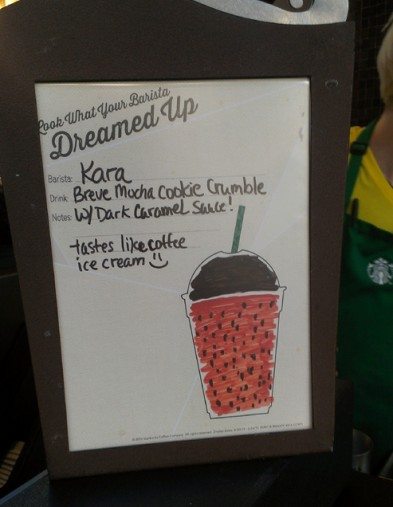 Look What Your Barista
Dreamed Up
Barista: Kara
Drink: Breve Mocha Cookie Crumble
Notes: W/Dark Caramel Sauce!
tastes like coffee
ice cream